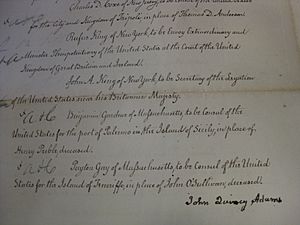 Charles D. Coxe of New Jersey, to be Consul of the United States
for the City and Kingdom of Tripoli, in place of Thomas D. Anderson
Rufus King of New York, to be Envoy Extraordinary and
Minister Plenipotentiary of the United States at the Court of the United
Kingdom of Great Britain and Ireland.
John A. King of New York, to be Secretary of the Legation
of the United States near his Britannic Majesty.
Benjamin Gardner of Massachusetts, to be Consul of the
United States for the port of Palermo in the Island of Sicily, in place of
Henry Preble, deceased.
Payton Gay of Massachusetts, to be Consul of the United
States for the Island of Teneriffe, in place of John O'Sullivan, deceased.
John Quincy Adams